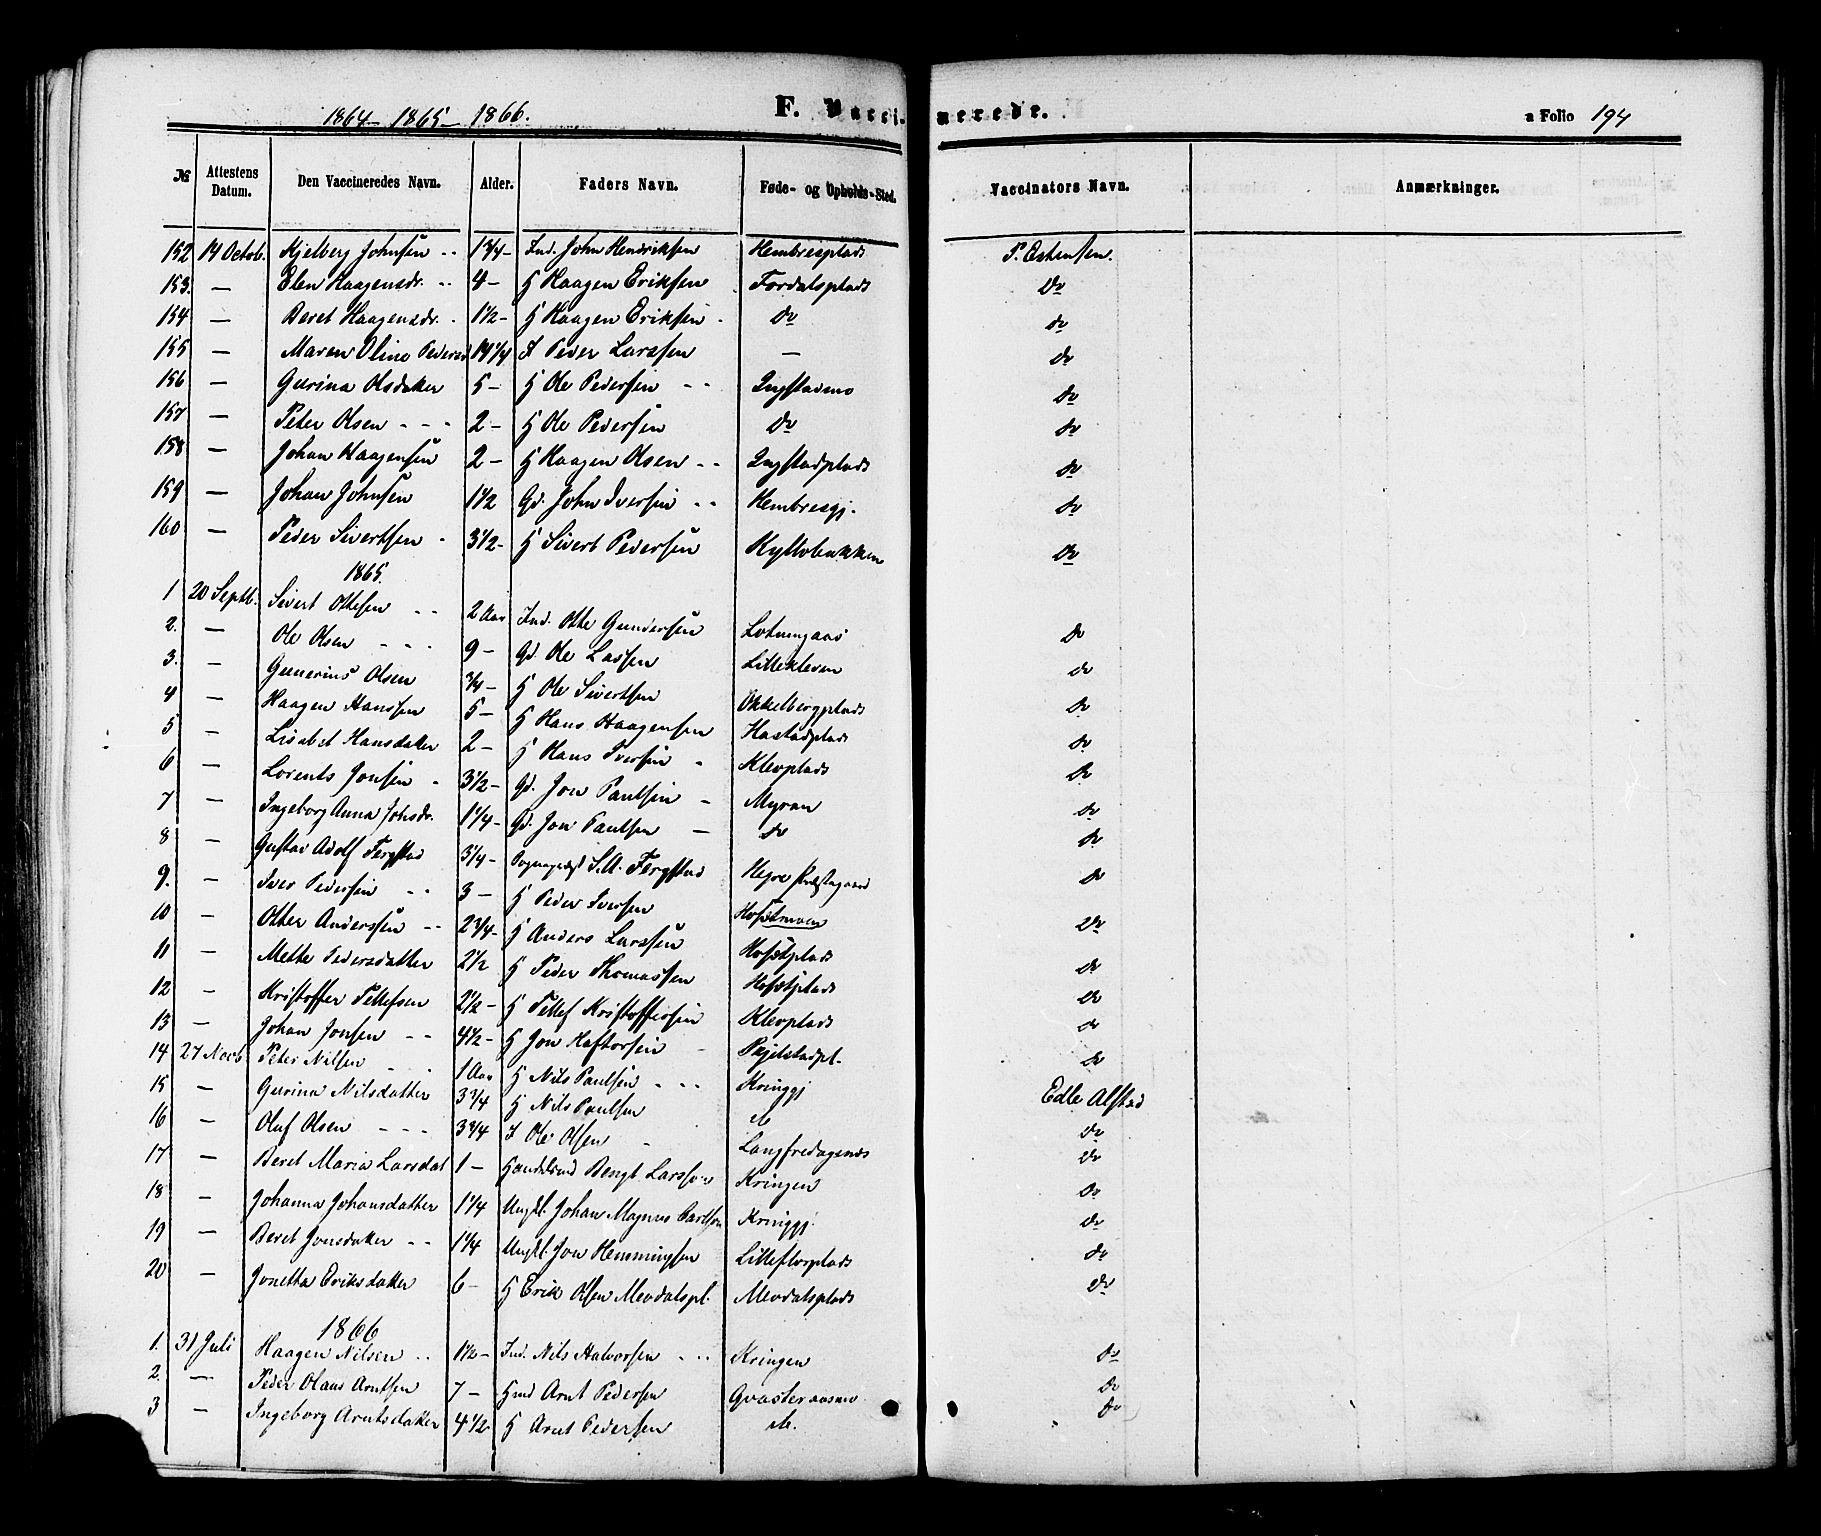 1864 - 1865 - 1866. F. Vaccinerede. a Folio 194
№ Attestens Datum. Den Vaccineredes Navn. Alder. Faders Navn. Føde- og Opholds-Sted. Vaccinators Navn. Anmærkninger.
152 14 Octob. Kjelberg Johnsen 1 3/4 - Ind. John Hendriksen Hembresplads P. Estensen.
153. — Elen Haagensdr. 4 - H Haagen Eriksen Fordalsplads Do
154 — Beret Haagensdr. 1 1/2 - H Haagen Eriksen do do
155 — Maren Oline Pedersd 14 1/4 I Peder Larssen — do
156 — Gurina Olsdatter 5 - H Ole Pedersen Ingstadmo do
157 — Peter Olsen 2 - H Ole Pedersen Do do
158 — Johan Haagensen 2 - H Haagen Olsen Ingstadplads do
159 — Johan Johnsen 1 1/2 Gd. John Iversen Hembresgj. do
160 — Peder Sivertsen 3 1/2 - H Sivert Pedersen Kyllobakken do
1865.
1 20 Septb. Sivert Ottesen 2 Aar Ind. Otte Gundersen do
2. — Ole Olsen 9 - Gd. Ole Lassen Lillekleven do
3. — Gunerius Olsen 3/4 - H Ole Sivertsen Okkelbergplads do
4 — Haagen Hanssen 5 - H Hans Haagensen Hastadplads do
5 — Lisabet Hansdatter 2 - H Hans Iversen Klevplads do
6 — Lorents Jonsen 3 1/2 - Gd. Jon Paulsen Myran do
7 — Ingeborg Anna Johsdr. 1 1/4 - Gd. Jon Paulsen — do do
8 — Gustav Adolf Fergstad 3 1/4 - Sognepræst S. A. Fergstad Hegre Præstegaard do
9. — Iver Pedersen 3 - H Peder Iversen Hofstmoen do
10 — Otter Anderssen 2 3/4 - H Anders Larssen Hofstplads do
11 — Mette Pedersdatter 2 1/2 H Peder Thomassen Hofstplads do
12 — Kristoffer Tellefsen 2 1/2 - H Tellef Kristoffersen Klevplads do
13 — Johan Jonsen 4 1/2 - H Jon Haftorsen Skjelstadpl. do
14 27 Novb Peter Nilsen 1 Aar H Nils Paulsen Kringgj Edle Alstad
15 — Gurina Nilsdatter 3 3/4 H Nils Paulsen do do
16 — Oluf Olsen 3 3/4 I Ole Olsen Langfredagenæs do
17 — Beret Maria Larsdat 1 - Handelsmd Bengt Larsson Kringen do
18 — Johanna Johansdatter 1 1/4 Ungkl. Johan Magnus Carlson Kringgj. do
19 — Beret Jonsdatter 1 1/4 Ungkl. Jon Hemmingsen Lillefloplads do
20 — Jonetta Eriksdatter 6 - H Erik Olsen Mevdalspl. Mevdalsplads do
1866
1. 31 Juli Haagen Nilsen 1 1/2 - Ind. Nils Halvorsen Kringen do
2. — Peder Olaus Arntsen 7 - Hmd Arnt Pedersen do
3 — Ingeborg Arntsdatter 4 1/2 - H Arnt Pedersen do. do